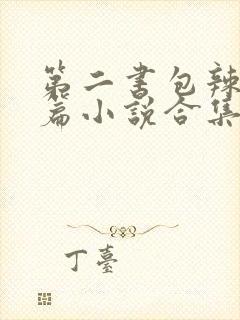 第二书包辣
篇小说合集
丁臺